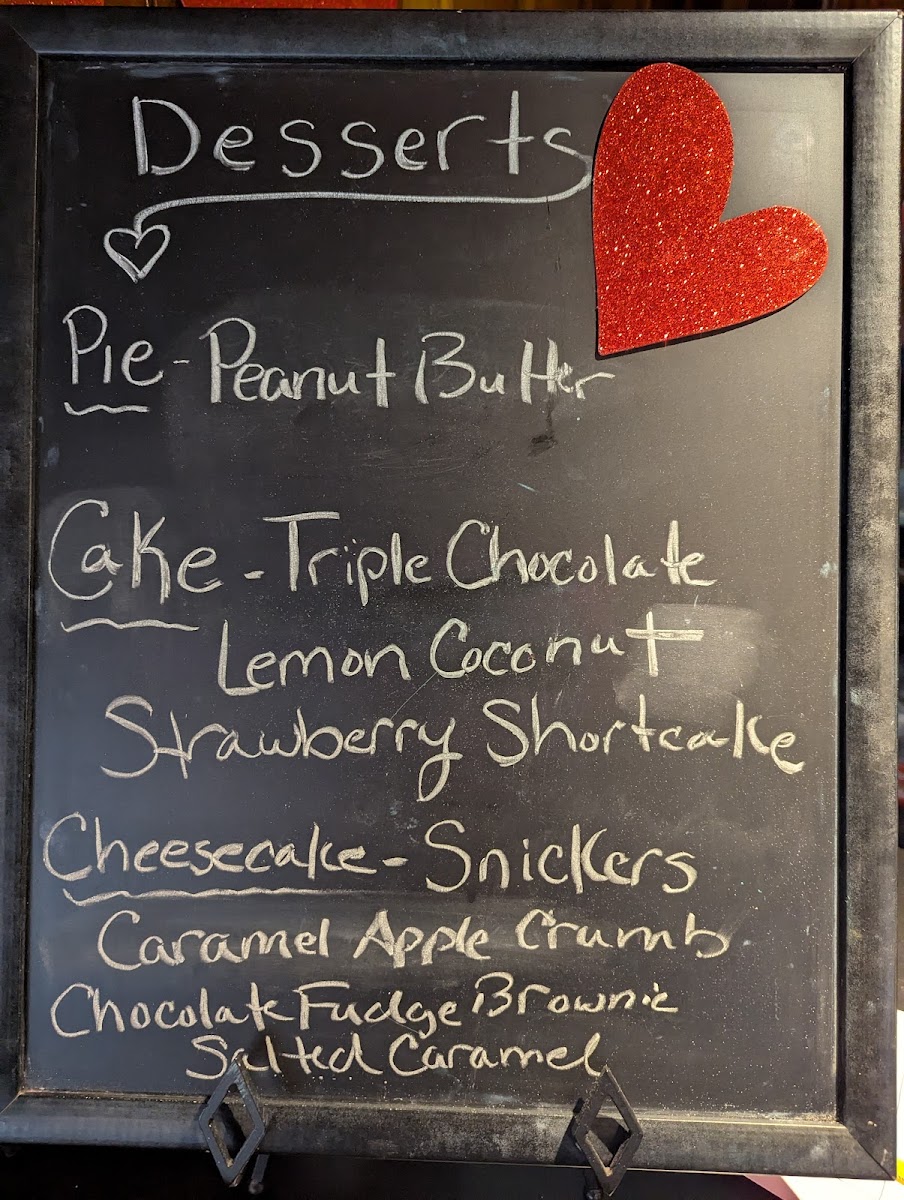 Desserts
Pie - Peanut Butter
Cake - Triple Chocolate
Lemon Coconut
Strawberry Shortcake
Cheesecake - Snickers
Caramel Apple Crumb
Chocolate Fudge Brownie
Salted Caramel